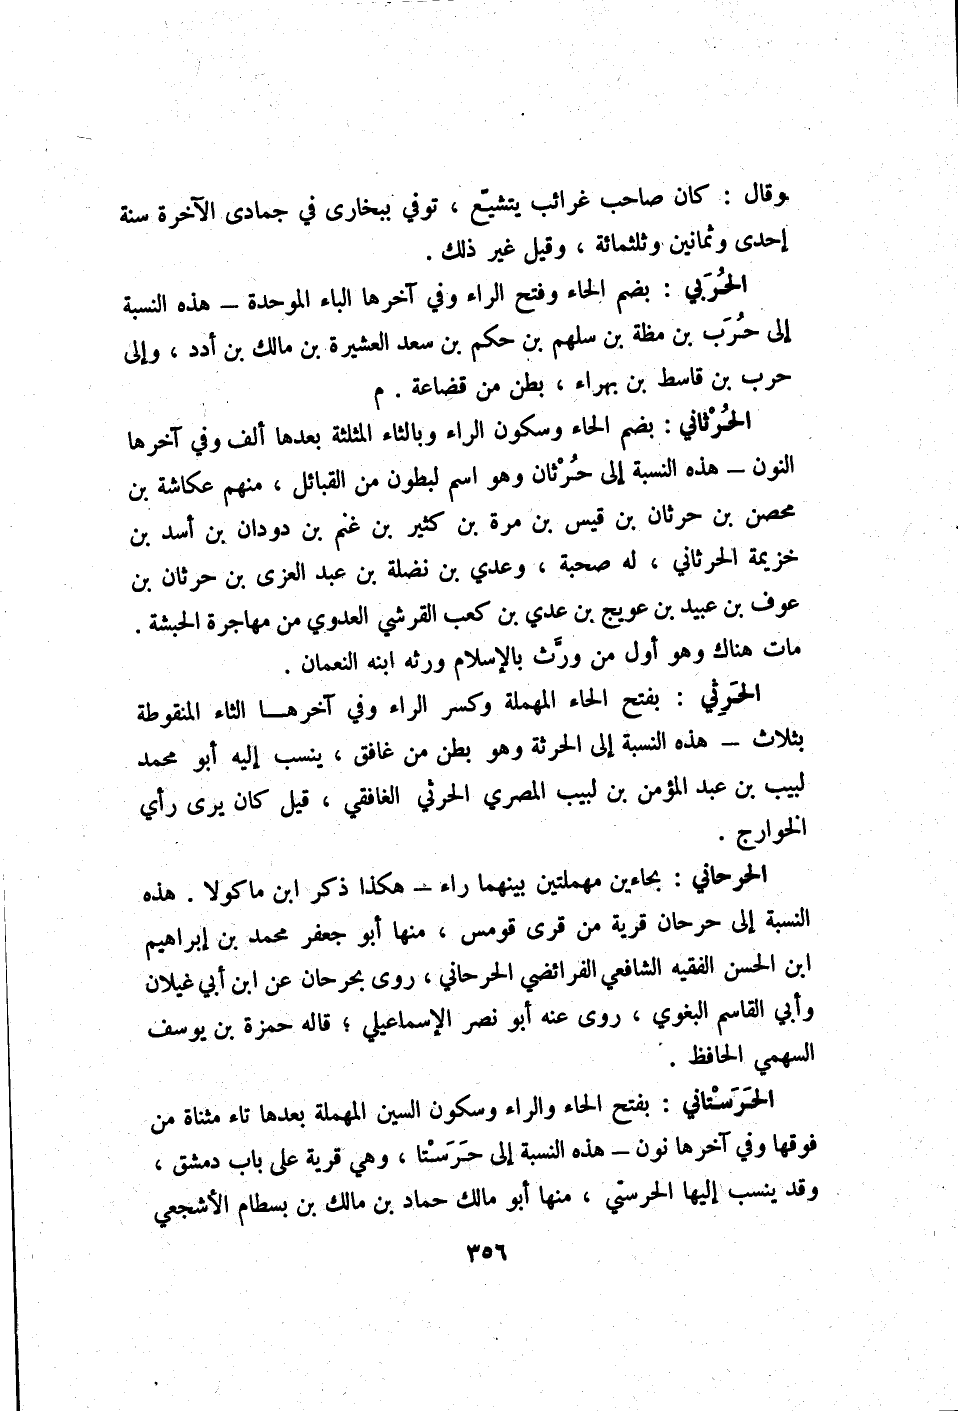 وقال : كان صاحب غرائب يتشيّع ، توفي ببخارى في جمادى الآخرة سنة
إحدى وثمانين وثلثمائة ، وقيل غير ذلك .
الحُرَبي : بضم الحاء وفتح الراء وفي آخرها الباء الموحدة – هذه النسبة
إلى حُرَب بن مظة بن سلهم بن حكم بن سعد العشيرة بن مالك بن أدد ، وإلى
حرب بن قاسط بن بهراء ، بطن من قضاعة . م
الحُرْثاني : بضم الحاء وسكون الراء وبالثاء المثلثة بعدها ألف وفي آخرها
النون – هذه النسبة إلى حُرْثان وهو اسم لبطون من القبائل ، منهم عكاشة بن
محصن بن حرثان بن قيس بن مرة بن كثير بن غنم بن دودان بن أسد بن
خزيمة الحرثاني ، له صحبة ، وعدي بن نضلة بن عبد العزى بن حرثان بن
عوف بن عبيد بن عويج بن عدي بن كعب القرشي العدوي من مهاجرة الحبشة .
مات هناك وهو أول من ورَّث بالإسلام ورثه ابنه النعمان .
الحَرِثي : بفتح الحاء المهملة وكسر الراء وفي آخرهـا الثاء المنقوطة
بثلاث – هذه النسبة إلى الحرثة وهو بطن من غافق ، ينسب إليه أبو محمد
لبيب بن عبد المؤمن بن لبيب المصري الحرثي الغافقي ، قيل كان يرى رأي
الخوارج .
الحرحاني : بحاءين مهملتين بينهما راء – هكذا ذكر ابن ماكولا . هذه
النسبة إلى حرحان قرية من قرى قومس ، منها أبو جعفر محمد بن إبراهيم
ابن الحسن الفقيه الشافعي الفرائضي الحرحاني ، روى بحرحان عن ابن أبي غيلان
وأبي القاسم البغوي ، روى عنه أبو نصر الإسماعيلي ؛ قاله حمزة بن يوسف
السهمي الحافظ .
الحَرَسْتاني : بفتح الحاء والراء وسكون السين المهملة بعدها تاء مثناة من
فوقها وفي آخرها نون – هذه النسبة إلى حَرَسْتا ، وهي قرية على باب دمشق ،
وقد ينسب إليها الحرستي ، منها أبو مالك حماد بن مالك بن بسطام الأشجعي
٣٥٦